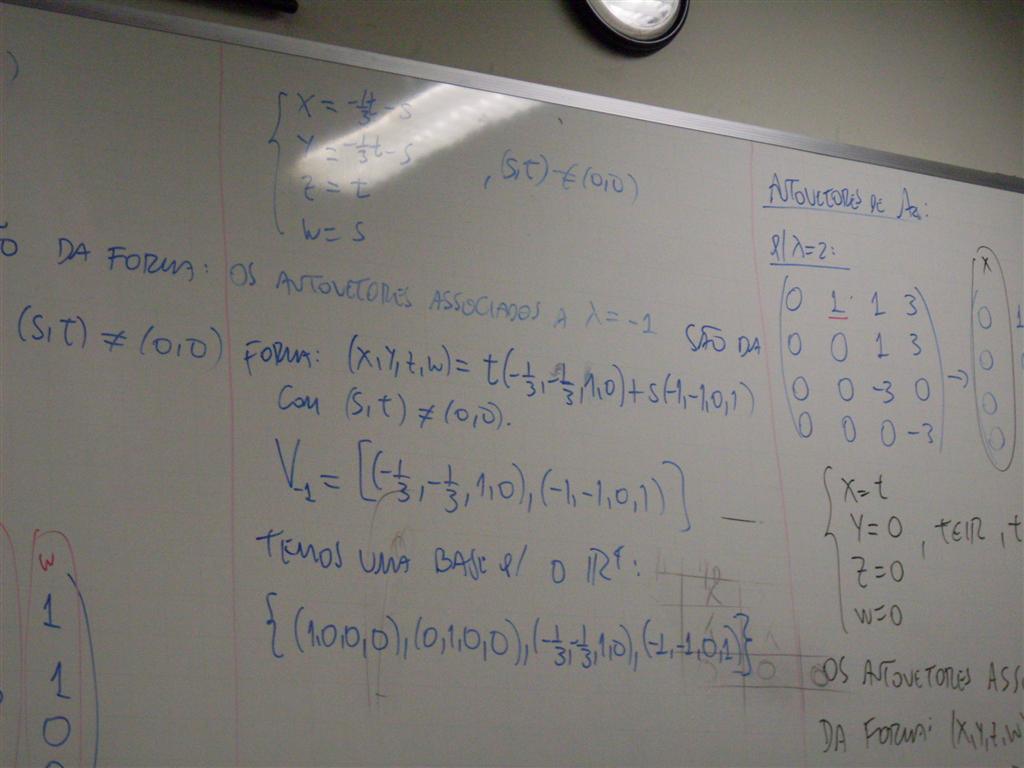 )
ÃO DA FORMA:
(S,T) ≠ (0,0)
W
1
1
0
X = -1/3 t - S
Y = -1/3 t - S
Z = t
W = S
, (S,T) ≠ (0,0)
OS AUTOVETORES ASSOCIADOS A λ = -1 SÃO DA
FORMA: (X,Y,Z,W) = t(-1/3, -1/3, 1, 0) + S(-1, -1, 0, 1)
COM (S,T) ≠ (0,0).
V₋₁ = [(-1/3, -1/3, 1, 0), (-1, -1, 0, 1)]
TEMOS UMA BASE P/ O ℝ⁴:
{(1,0,0,0), (0,1,0,0), (-1/3, -1/3, 1, 0), (-1, -1, 0, 1)}
AUTOVETORES DE
P/ λ=2:
0 1 1 3
0 0 1 3
0 0 -3 0
0 0 0 -3
→
X
0 1
0
0
0
X = t
Y = 0
Z = 0
W = 0
, t∈ℝ, t
OS AUTOVETORES ASS
DA FORMA: (X,Y,Z,W)